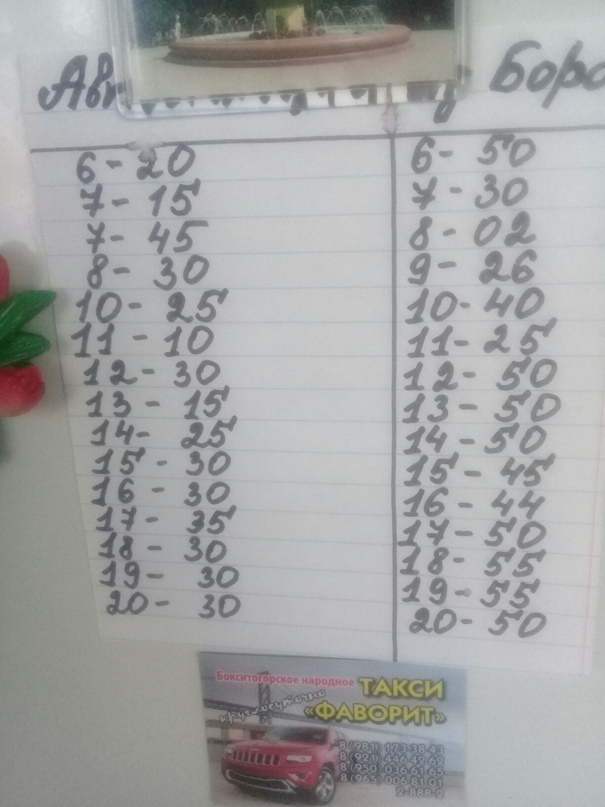 6- 20 6- 50
7- 15 7- 30
7- 45 8- 02
8- 30 9- 26
10- 25 10- 40
11 - 10 11- 25
12- 30 12- 50
13 - 15 13- 50
14- 25 14- 50
15 - 30 15- 45
16 - 30 16- 44
17- 35 17- 50
18 - 30 18- 55
19- 30 19- 55
20- 30 20- 50
Бокситогорское народное
ТАКСИ
круглосуточно
«ФАВОРИТ»
8 (981) 173 38 43
8 (921) 446 42 62
8 (950) 036 61 65
8 (965) 006 81 01
2-888-2